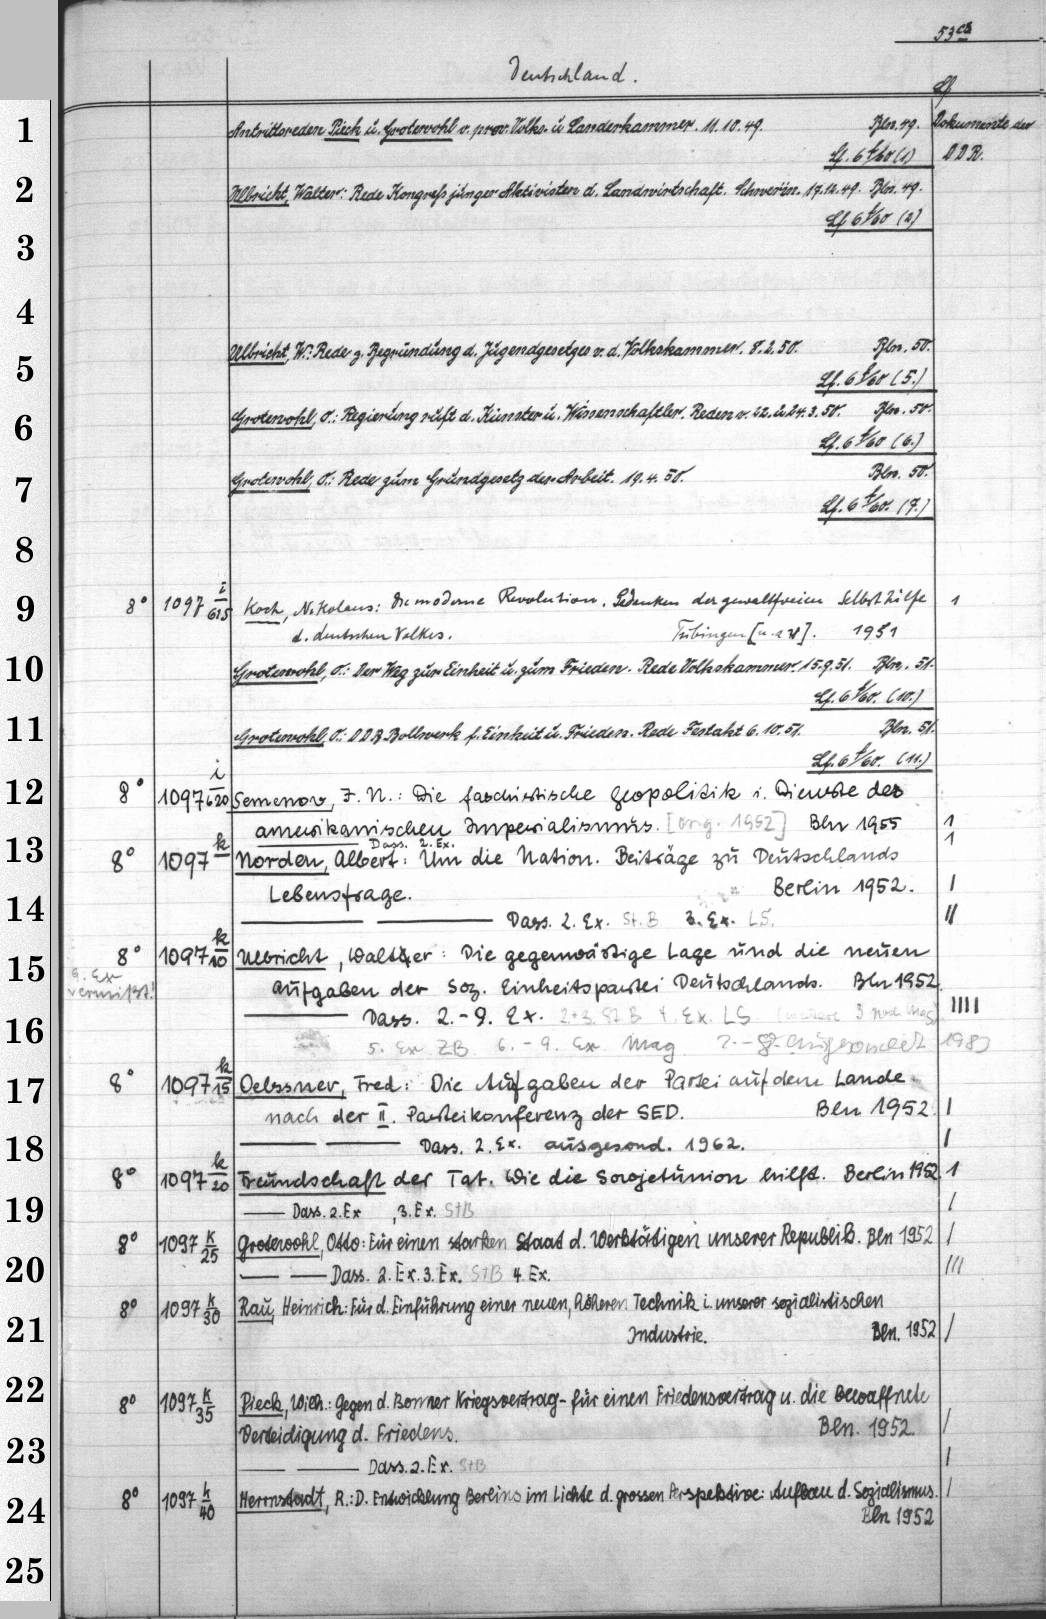 53
Deutschland.
1 Antrittsreden Pieck u. Grotewohl v. prov. Volks- u Länderkammer. 11.10.49. Bln. 49. Dokumente der
(1) DDR.
2 Ulbricht, Walter: Rede Kongreß junger Aktivisten d. Landwirtschaft. Schwerin. 17.12.49. Bln. 49.
(2)
3
4
5 Ulbricht, W.: Rede z. Begründung d. Jugendgesetzes v. d. Volkskammer. 8.2.50. Bln. 50.
(5.)
6 Grotewohl, O.: Regierung ruft d. Künstler u. Wissenschaftler. Reden v. 22. u. 24.3.50. Bln. 50.
(6.)
7 Grotewohl, O.: Rede zum Grundgesetz der Arbeit. 19.4.50. Bln. 50.
(7.)
8
9 8° 1097 i/615 Koch, Nikolaus: Die moderne Revolution. Gedanken der gewaltfreien Selbsthilfe 1
d. deutschen Volkes. Tübingen [u.a.]. 1951
10 Grotewohl, O.: Der Weg zur Einheit u. zum Frieden. Rede Volkskammer. 15.9.51. Bln. 51.
(10.)
11 Grotewohl, O.: DDR Bollwerk f. Einheit u. Frieden. Rede Festakt 6.10.51. Bln. 51.
(11.)
12 8° 1097 i/620 Semenov, J. N.: Die faschistische Geopolitik i. Dienste des
amerikanischen Imperialismus. [orig. 1952] Bln 1955 1
Dass. 2. Ex. 1
13 8° 1097 k Norden, Albert: Um die Nation. Beiträge zu Deutschlands
Lebensfrage. Berlin 1952. 1
14 Dass. 2. Ex. St.B 3. Ex. LS. II
15 8° 1097 k/10 Ulbricht, Walter: Die gegenwärtige Lage und die neuen
9. Ex vermißt! Aufgaben der Soz. Einheitspartei Deutschlands. Bln 1952
Dass. 2.-9. Ex. 2+3. St B 4. Ex. LS IIII
16 5. Ex ZB 6.-9. Ex Mag ausgesondert
17 8° 1097 k/15 Oelssner, Fred: Die Aufgaben der Partei auf dem Lande
nach der II. Parteikonferenz der SED. Bln 1952. 1
18 Dass. 2. Ex. ausgesond. 1962. 1
8° 1097 k/20 Freundschaft der Tat. Wie die Sowjetunion hilft. Berlin 1952. 1
19 Dass. 2. Ex, 3. Ex. StB /
8° 1097 k/25 Grotewohl, Otto: Für einen starken Staat d. Werktätigen unserer Republik. Bln 1952 /
20 Dass. 2. Ex. 3. Ex. StB 4. Ex. ///
8° 1097 k/30 Rau, Heinrich: Für d. Einführung einer neuen, höheren Technik i. unserer sozialistischen
21 Industrie. Bln. 1952 /
22 8° 1097 k/35 Pieck, Wilh.: Gegen d. Bonner Kriegsvertrag - für einen Friedensvertrag u. die bewaffnete
Verteidigung d. Friedens. Bln. 1952. /
23 Dass. 2. Ex. StB /
24 8° 1097 k/40 Herrnstadt, R.: D. Entwicklung Berlins im Lichte d. grossen Perspektive: Aufbau d. Sozialismus. /
Bln 1952
25